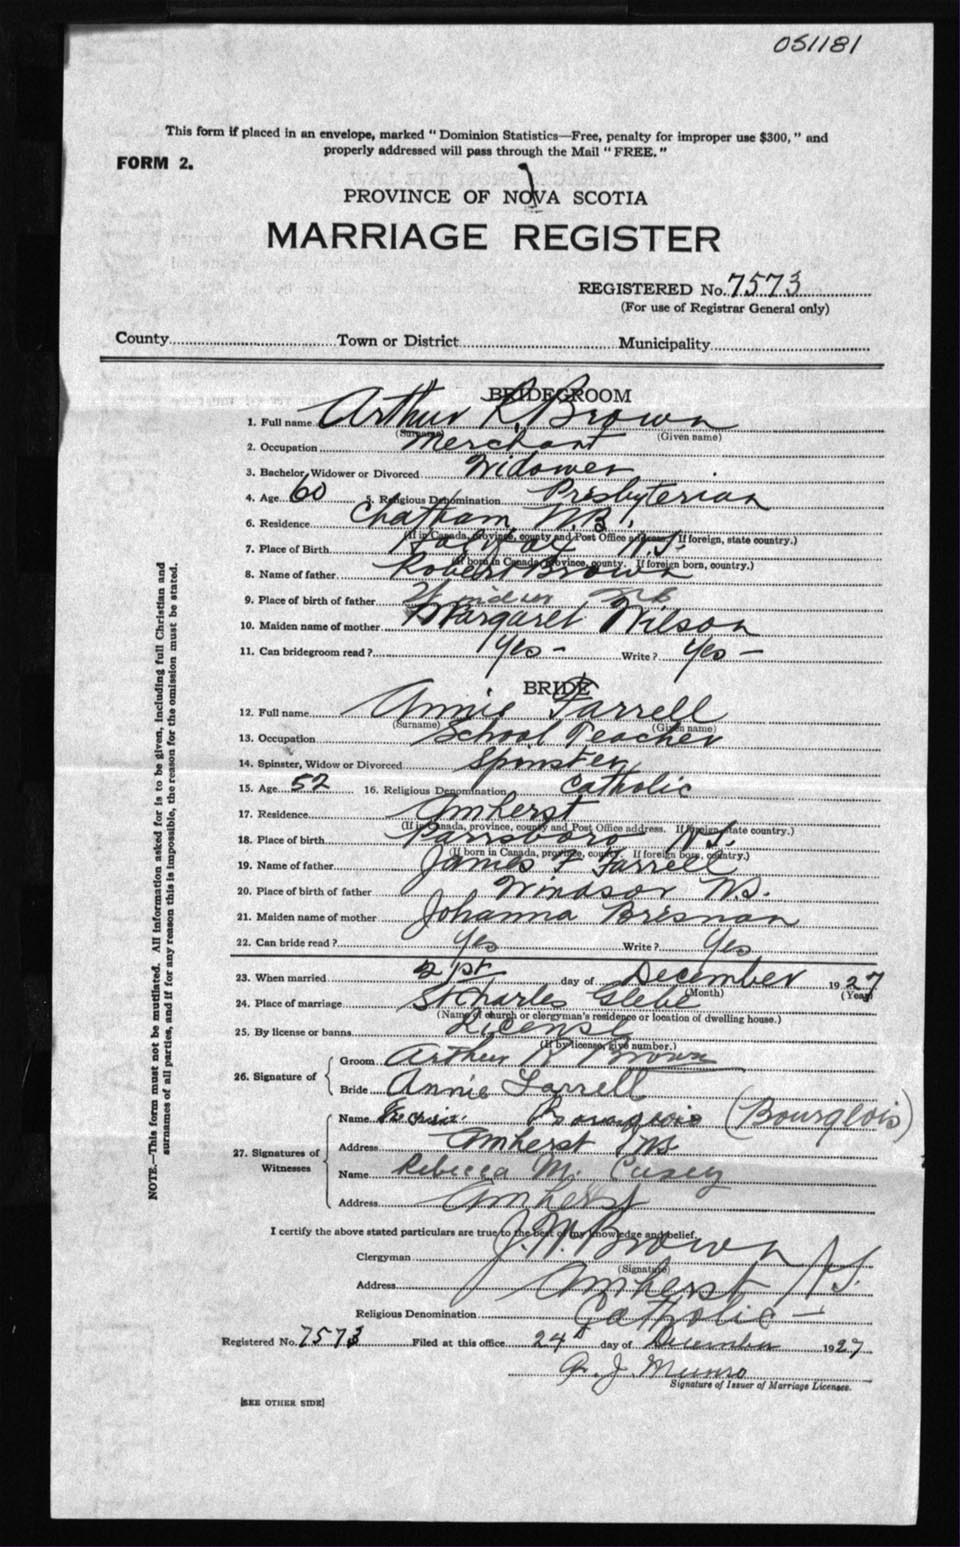 051181
This form if placed in an envelope, marked "Dominion Statistics—Free, penalty for improper use $300," and
properly addressed will pass through the Mail "FREE."
FORM 2.
PROVINCE OF NOVA SCOTIA
MARRIAGE REGISTER
REGISTERED No. 7573
(For use of Registrar General only)
County Town or District Municipality
BRIDEGROOM
1. Full name Arthur R. Brown
(Surname) (Given name)
2. Occupation Merchant
3. Bachelor, Widower or Divorced Widower
4. Age 60 5. Religious Denomination Presbyterian
6. Residence Chatham N.B.
(If in Canada, province, county and Post Office address. If foreign, state country.)
7. Place of Birth N.S.
(If born in Canada, province, county. If foreign born, country.)
8. Name of father Robert Brown
9. Place of birth of father
10. Maiden name of mother Margaret Wilson
11. Can bridegroom read? Yes - Write? Yes -
BRIDE
12. Full name Annie Farrell
(Surname) (Given name)
13. Occupation School Teacher
14. Spinster, Widow or Divorced Spinster
15. Age 52 16. Religious Denomination Catholic
17. Residence Amherst
(If in Canada, province, county and Post Office address. If foreign, state country.)
18. Place of birth Parrsboro N.S.
(If born in Canada, province, county. If foreign born, country.)
19. Name of father James F Farrell
20. Place of birth of father Windsor N.S.
21. Maiden name of mother Johanna Bresnan
22. Can bride read? Yes Write? Yes
23. When married 21st day of December 1927
(Month) (Year)
24. Place of marriage St Charles Glebe
(Name of church or clergyman's residence or location of dwelling house.)
25. By license or banns License
(If by license, give number.)
26. Signature of Groom Arthur R Brown
Bride Annie Farrell
27. Signatures of Witnesses Name Bourgeois (Bourgeois)
Address Amherst NS
Name Rebecca M. Casey
Address Amherst
I certify the above stated particulars are true to the best of my knowledge and belief.
Clergyman J. W. Brown
(Signature)
Address Amherst N.S.
Religious Denomination Catholic -
Registered No. 7573 Filed at this office 24th day of December 1927
J. Munro
Signature of Issuer of Marriage Licenses.
[SEE OTHER SIDE]
NOTE.—This form must not be mutilated. All information asked for is to be given, including full Christian and
surnames of all parties, and if for any reason this is impossible, the reason for the omission must be stated.